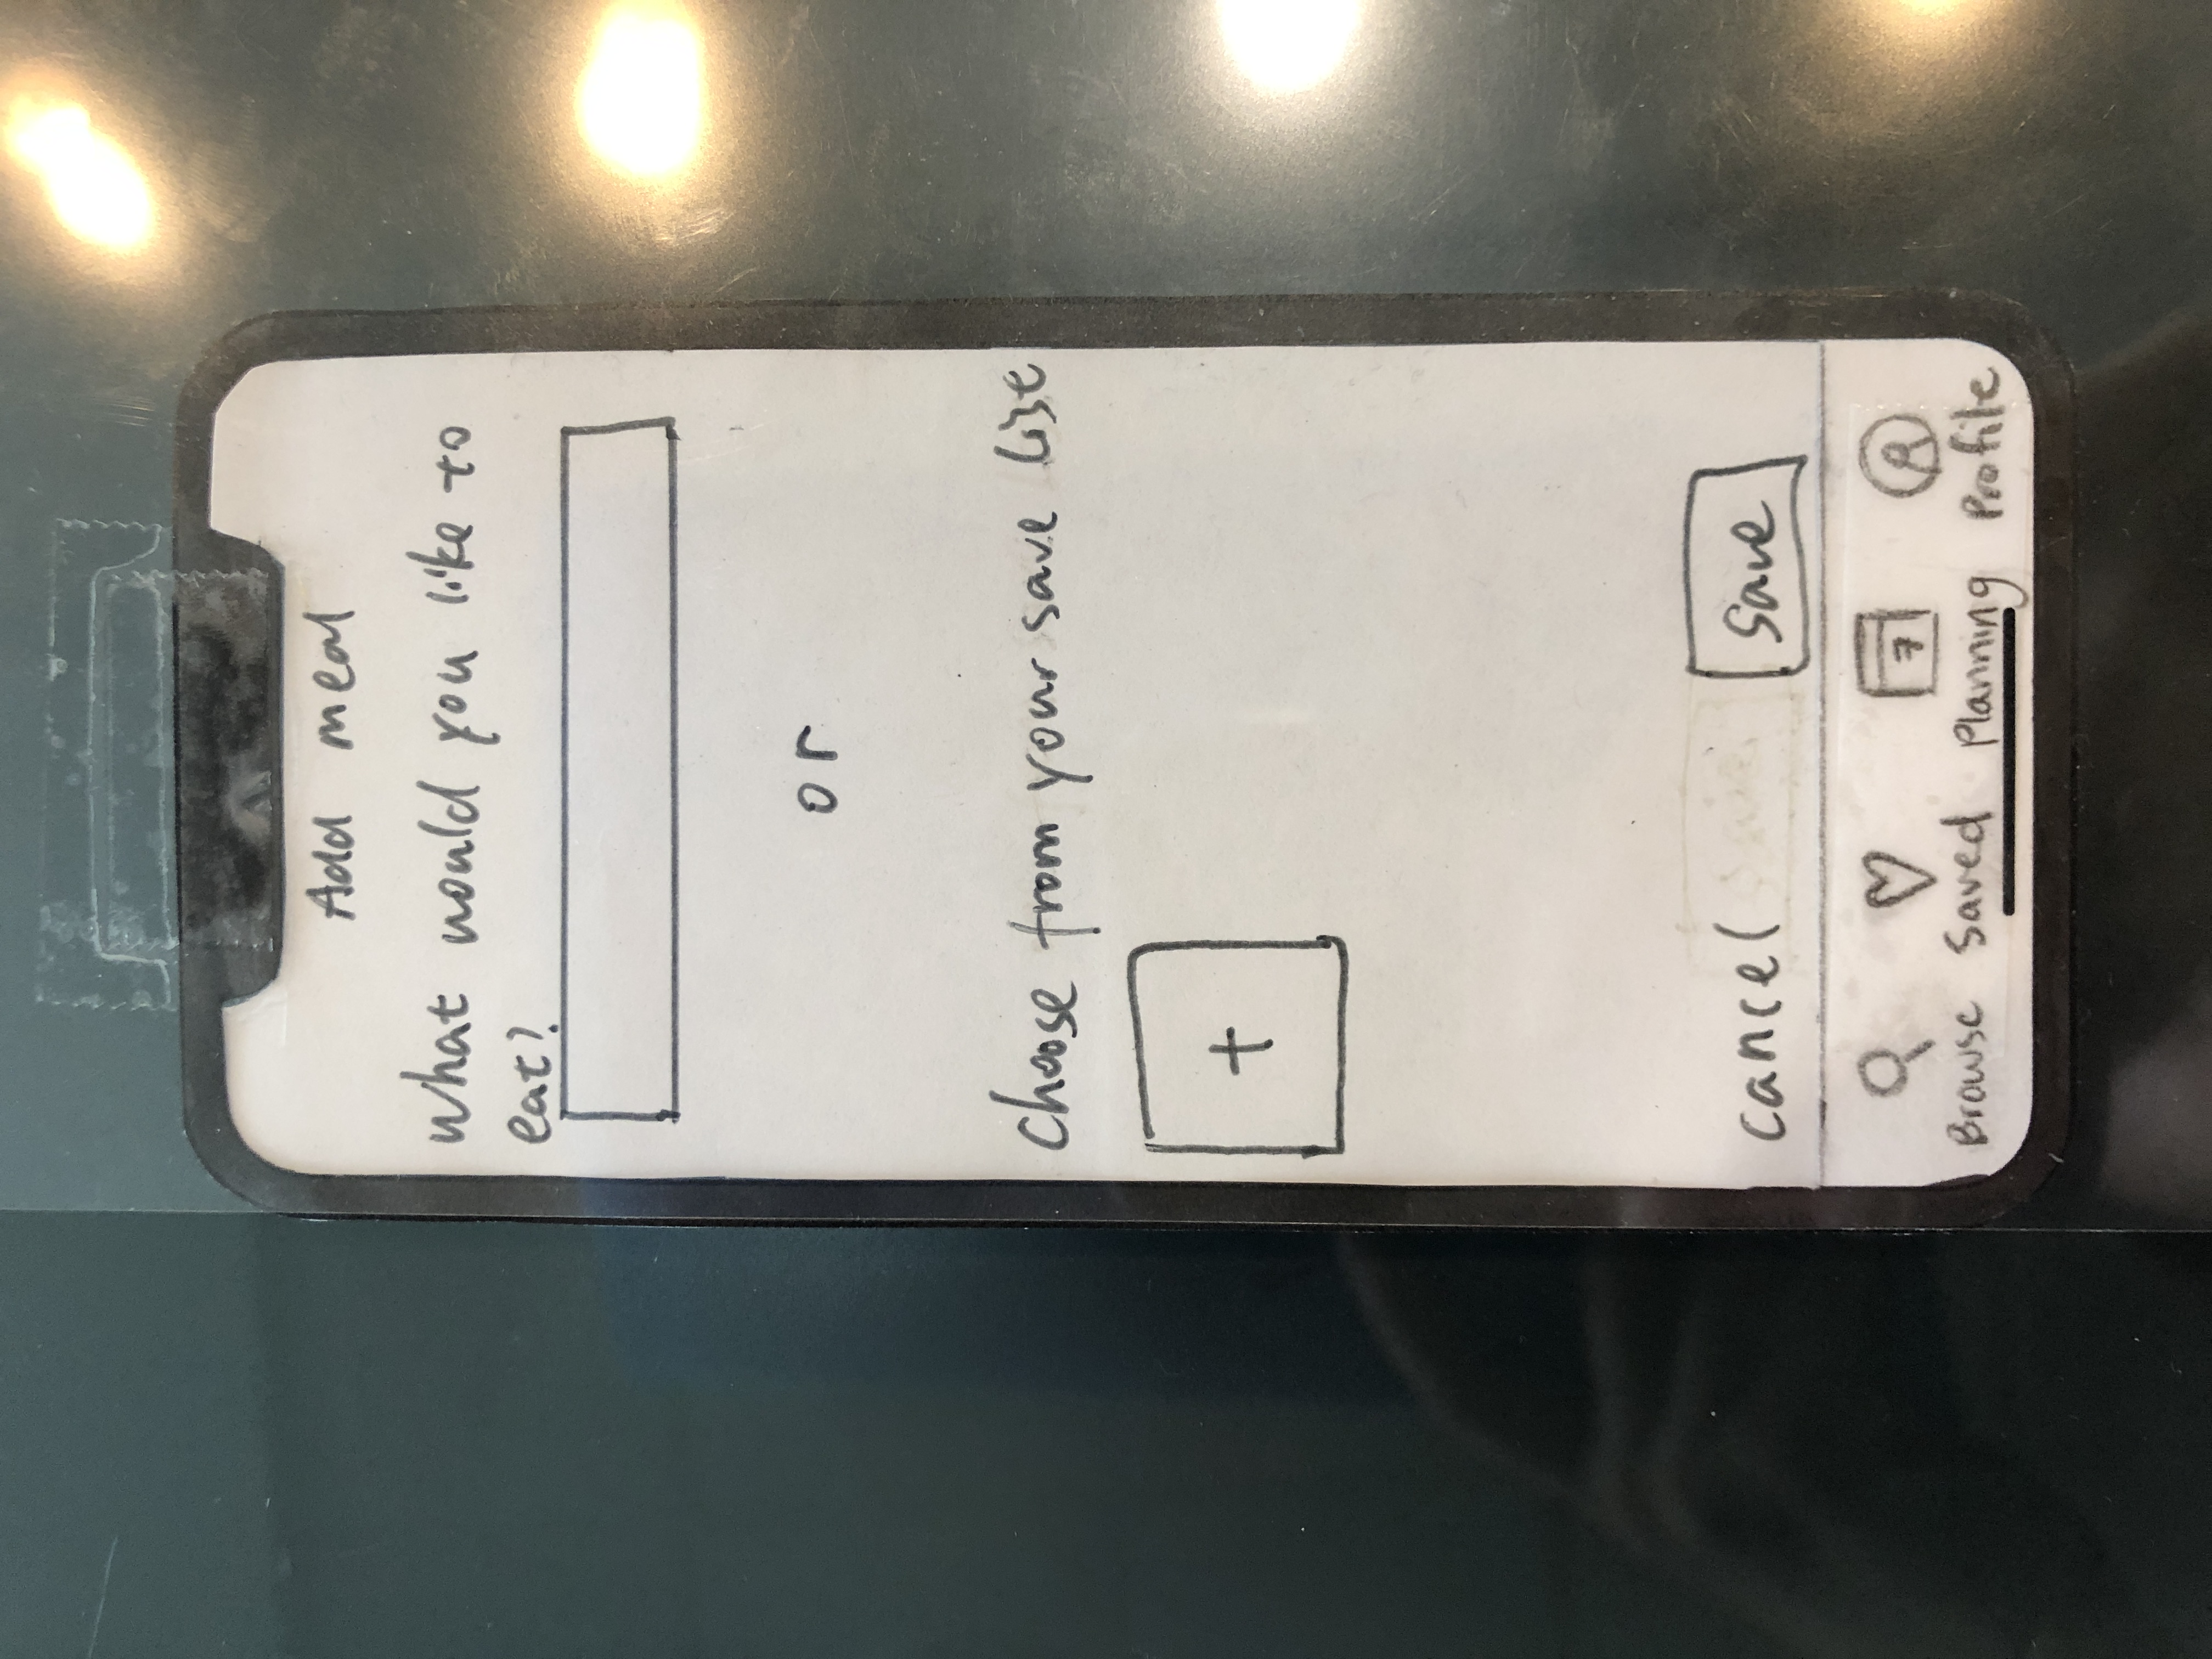 Add meal
What would you like to
eat?
or
Choose from your save list
+
cancel
Save
7
Browse Saved Planning Profile